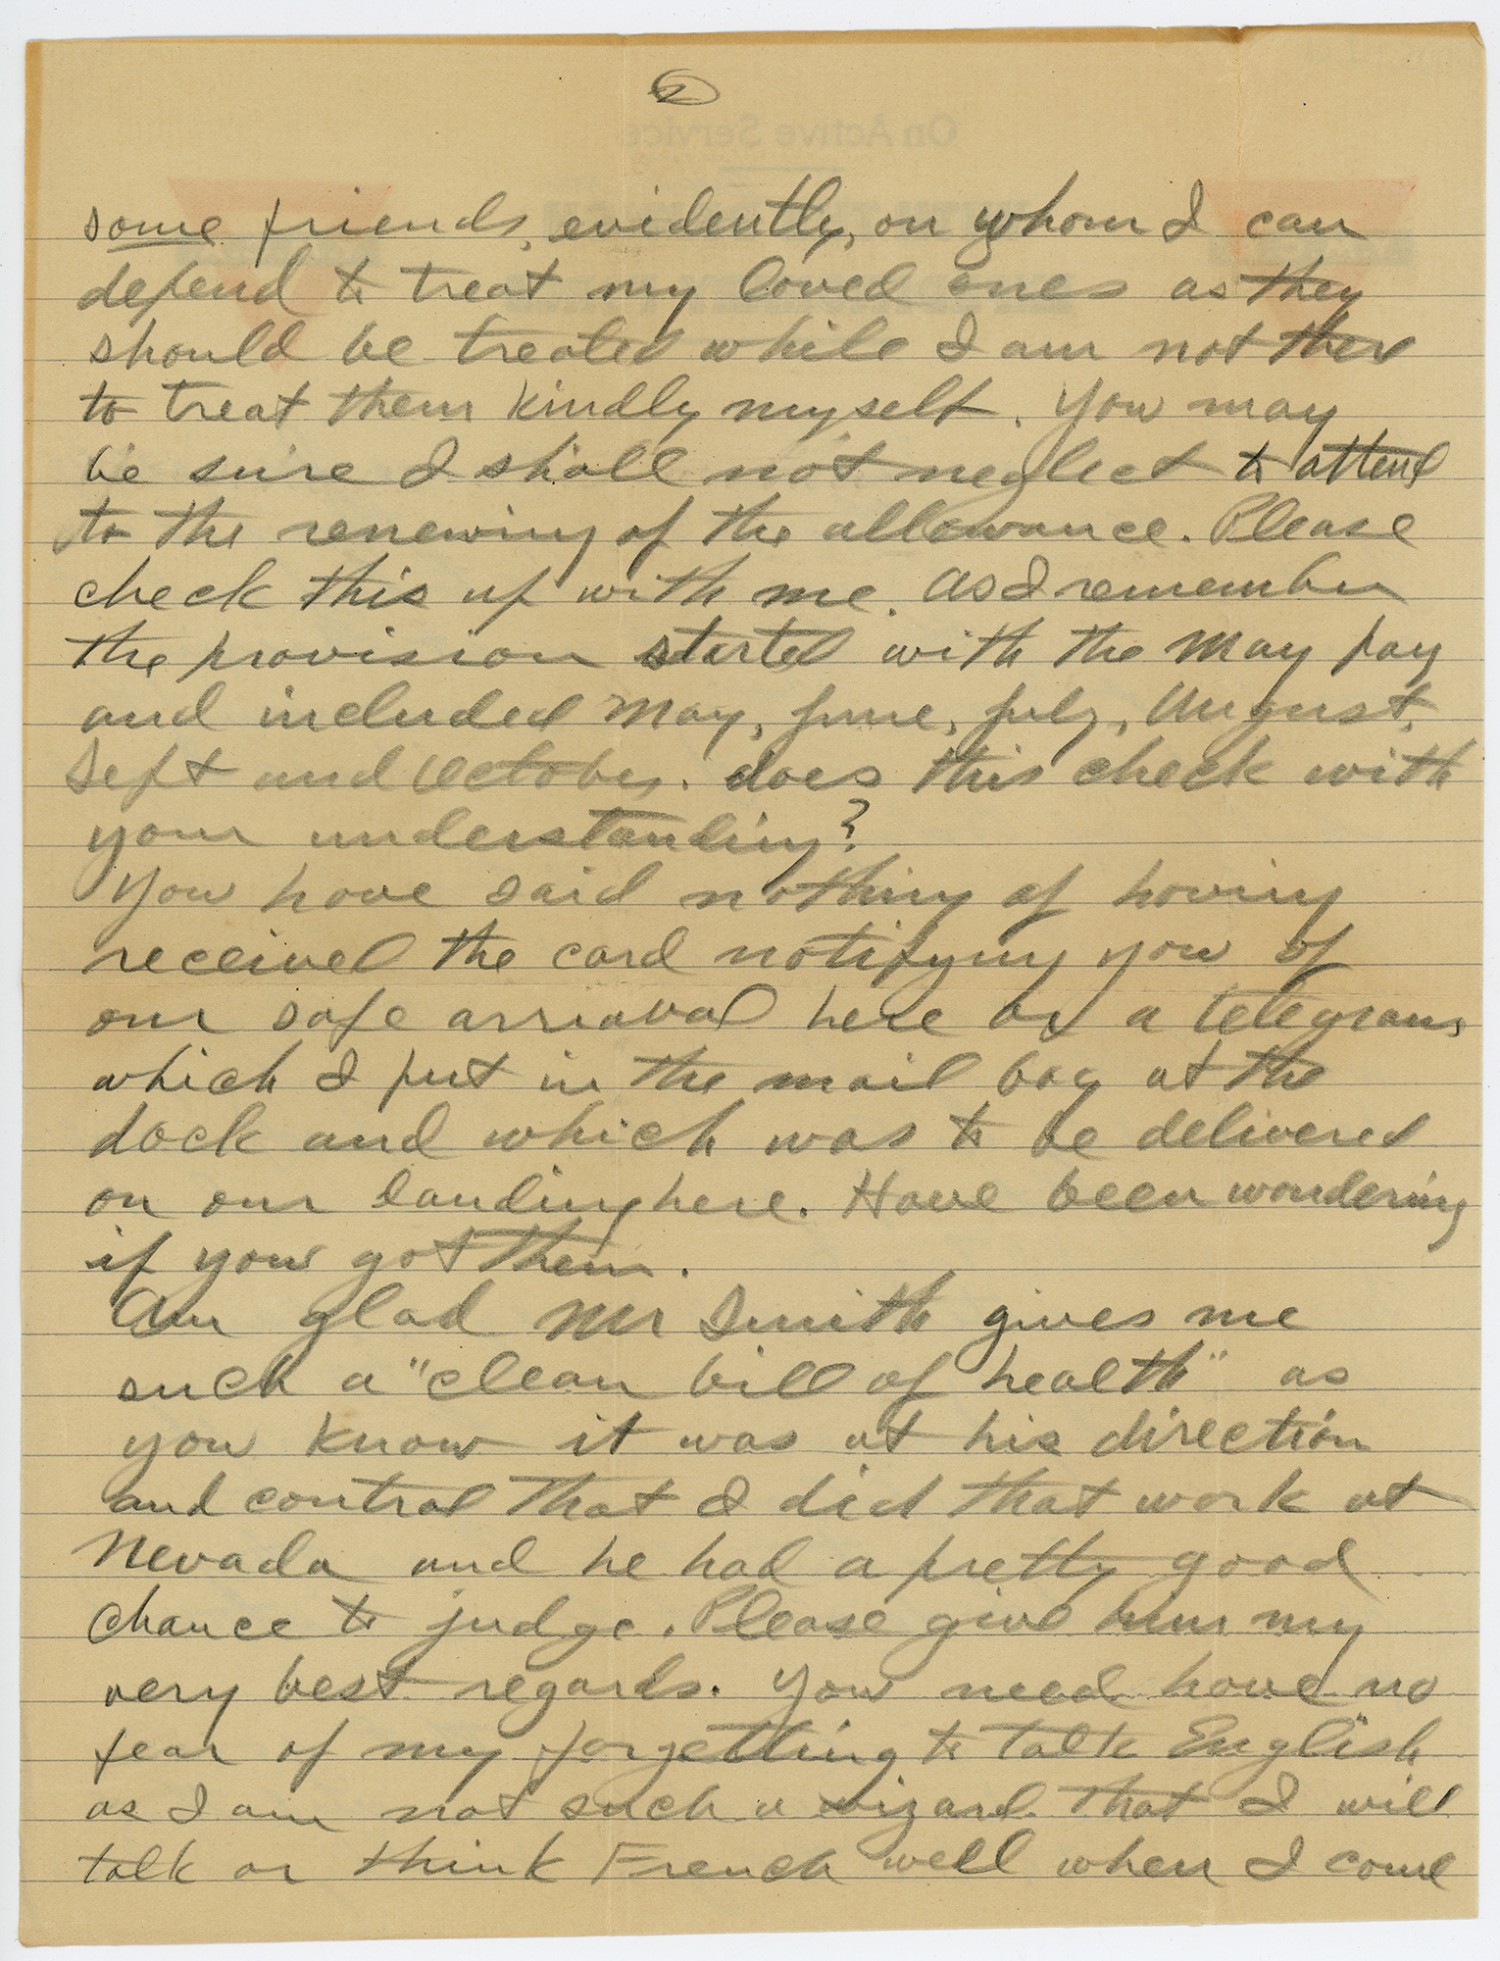 2
On Active Service
some friends, evidently, on whom I can
depend to treat my loved ones as they
should be treated while I am not there
to treat them kindly myself. You may
be sure I shall not neglect to attend
to the renewing of the allowance. Please
check this up with me. As I remember
the provision started with the May pay
and included May, June, July, August,
Sept and October. does this check with
your understanding?
You have said nothing of having
received the card notifying you of
our safe arriaval here or a telegram,
which I put in the mail bag at the
dock and which was to be delivered
on our landing here. Have been wondering
if you got them.
Am glad Mr Smith gives me
such a "clean bill of health" as
you know it was at his direction
and control that I did that work at
Nevada and he had a pretty good
chance to judge. Please give him my
very best regards. You need have no
fear of my forgetting to talk English
as I am not such a wizard that I will
talk or think French well when I come